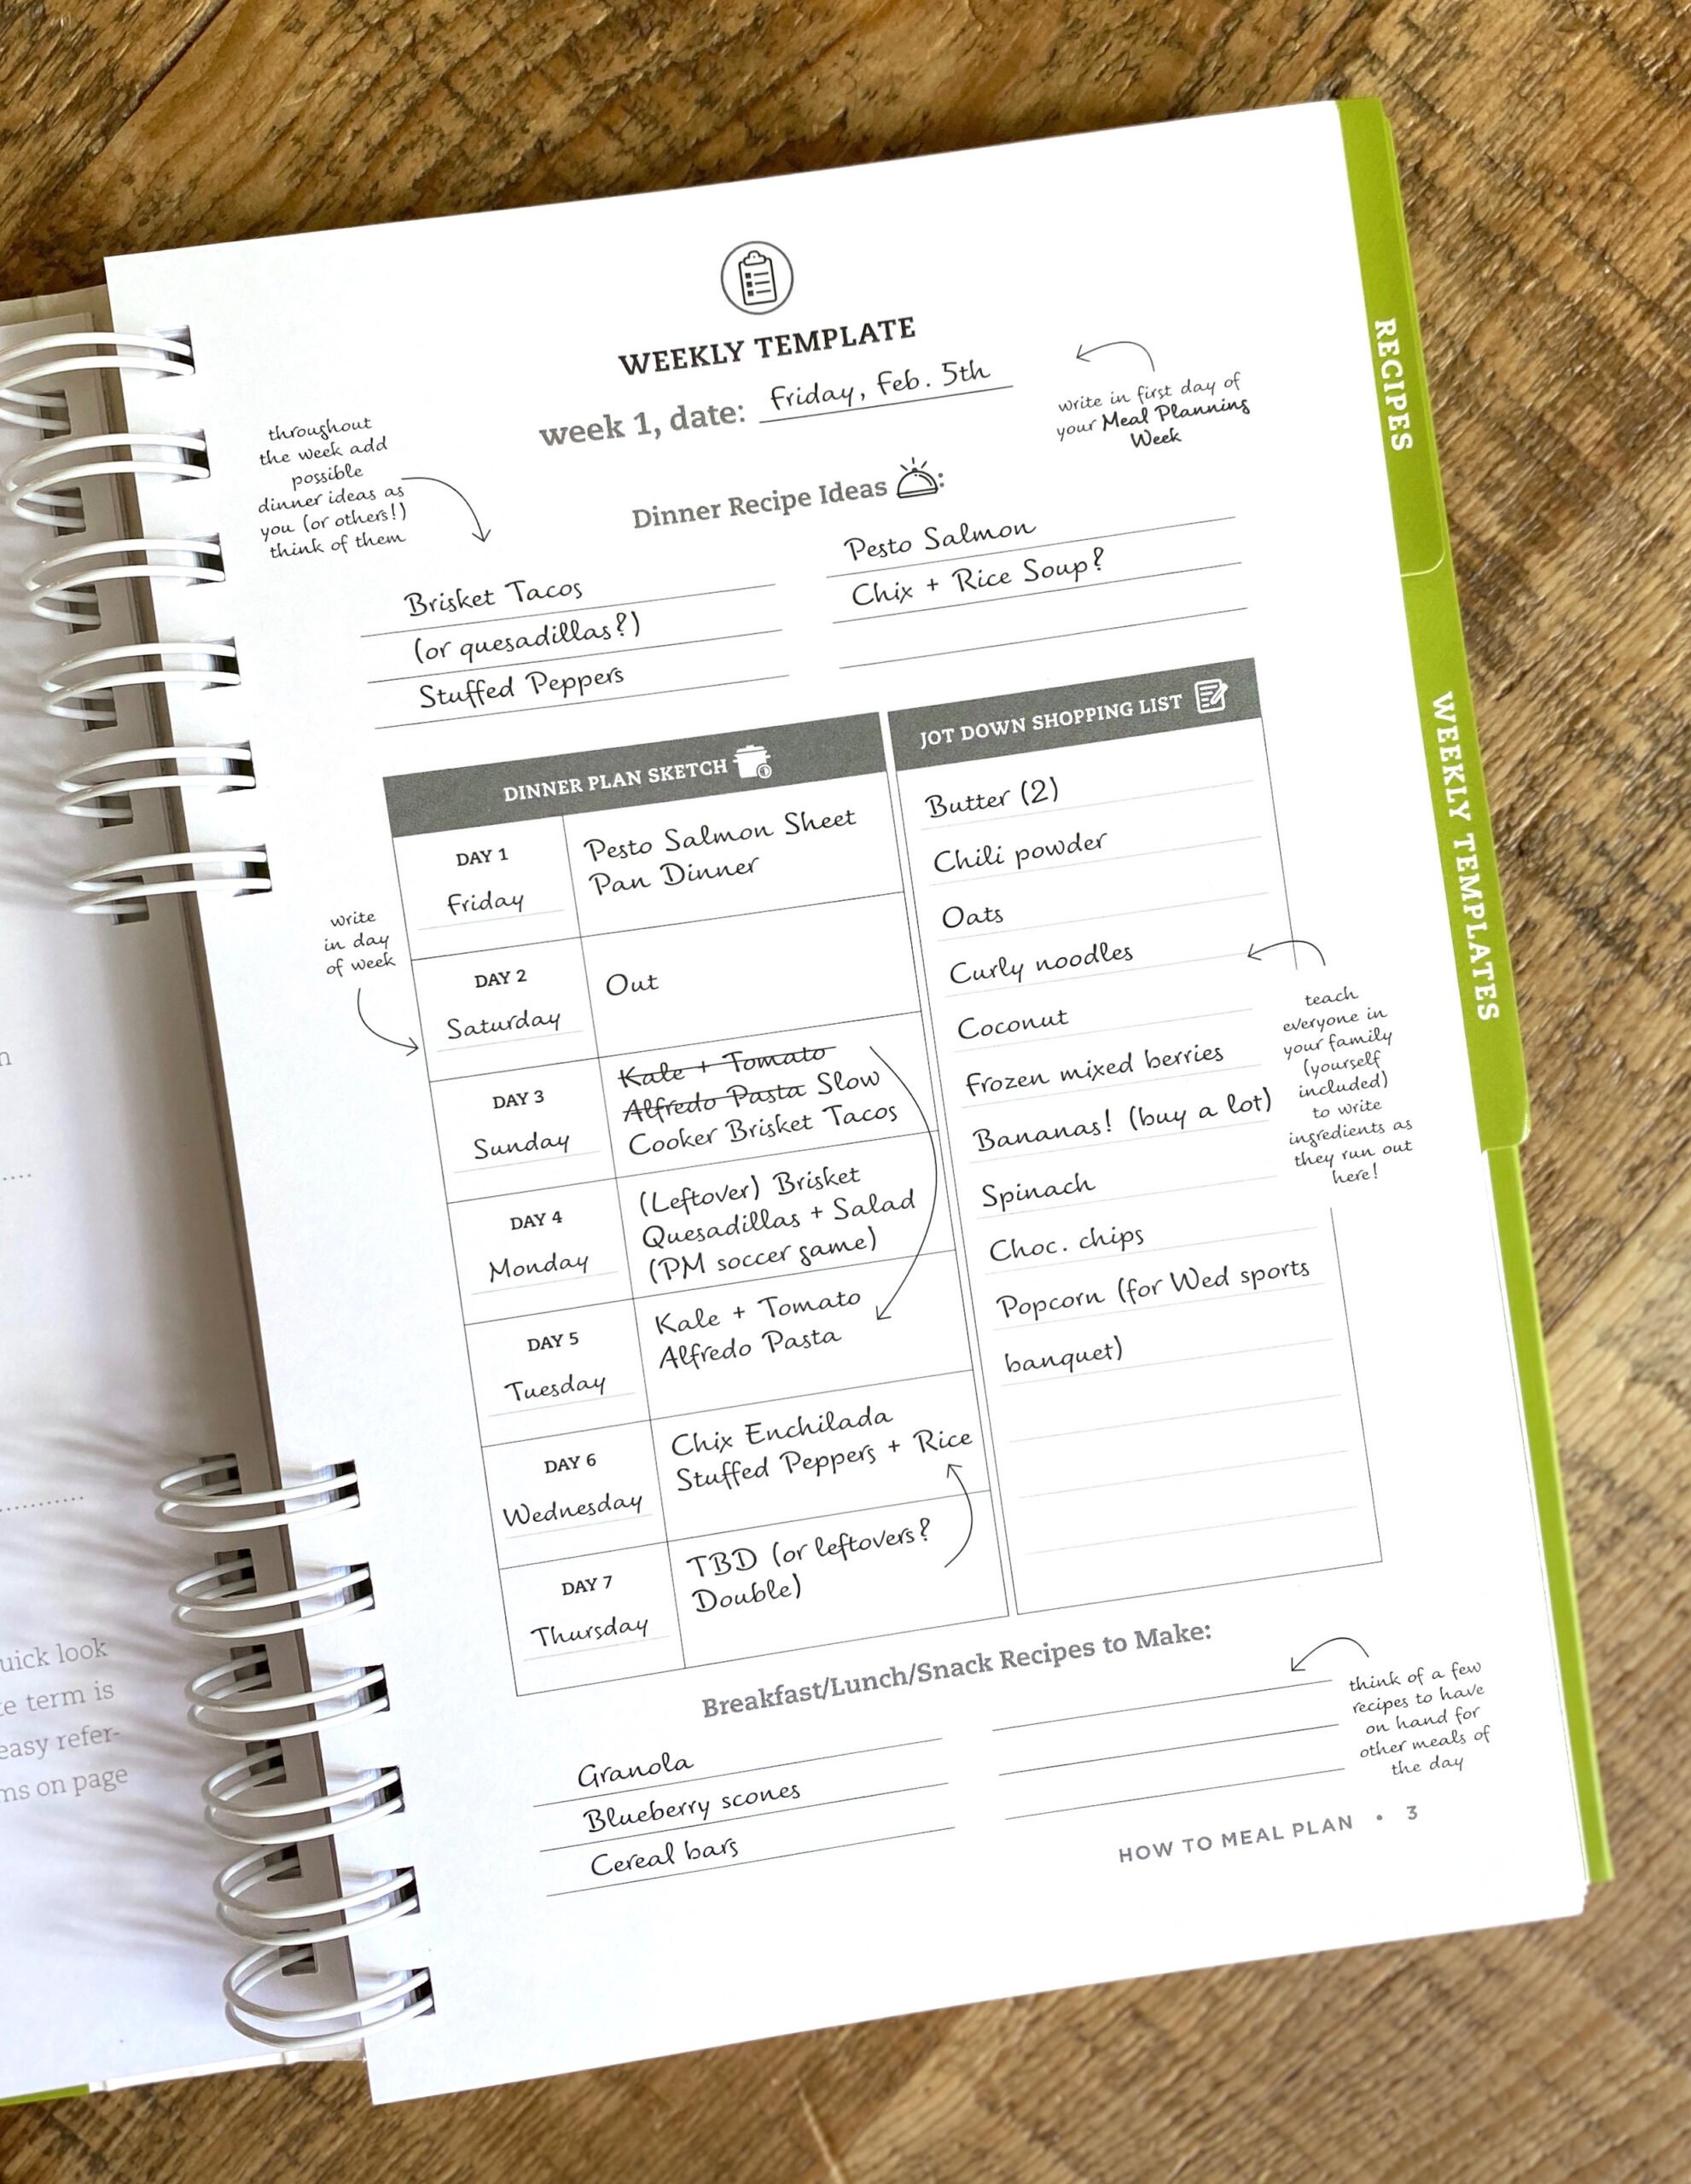 WEEKLY TEMPLATE
week 1, date: Friday, Feb. 5th
write in first day of
your Meal Planning
Week
throughout
the week add
possible
dinner ideas as
you (or others!)
think of them
Dinner Recipe Ideas :
Brisket Tacos
(or quesadillas?)
Stuffed Peppers
Pesto Salmon
Chix + Rice Soup?
DINNER PLAN SKETCH
DAY 1
Friday
Pesto Salmon Sheet
Pan Dinner
DAY 2
Saturday
Out
write
in day
of week
DAY 3
Sunday
Kale + Tomato
Alfredo Pasta Slow
Cooker Brisket Tacos
DAY 4
Monday
(Leftover) Brisket
Quesadillas + Salad
(PM soccer game)
DAY 5
Tuesday
Kale + Tomato
Alfredo Pasta
DAY 6
Wednesday
Chix Enchilada
Stuffed Peppers + Rice
DAY 7
Thursday
TBD (or leftovers?
Double)
JOT DOWN SHOPPING LIST
Butter (2)
Chili powder
Oats
Curly noodles
Coconut
Frozen mixed berries
Bananas! (buy a lot)
Spinach
Choc. chips
Popcorn (for Wed sports
banquet)
teach
everyone in
your family
(yourself
included)
to write
ingredients as
they run out
here!
Breakfast/Lunch/Snack Recipes to Make:
Granola
Blueberry scones
Cereal bars
think of a few
recipes to have
on hand for
other meals of
the day
HOW TO MEAL PLAN • 3
RECIPES
WEEKLY TEMPLATES
look
term is
easy refer-
on page